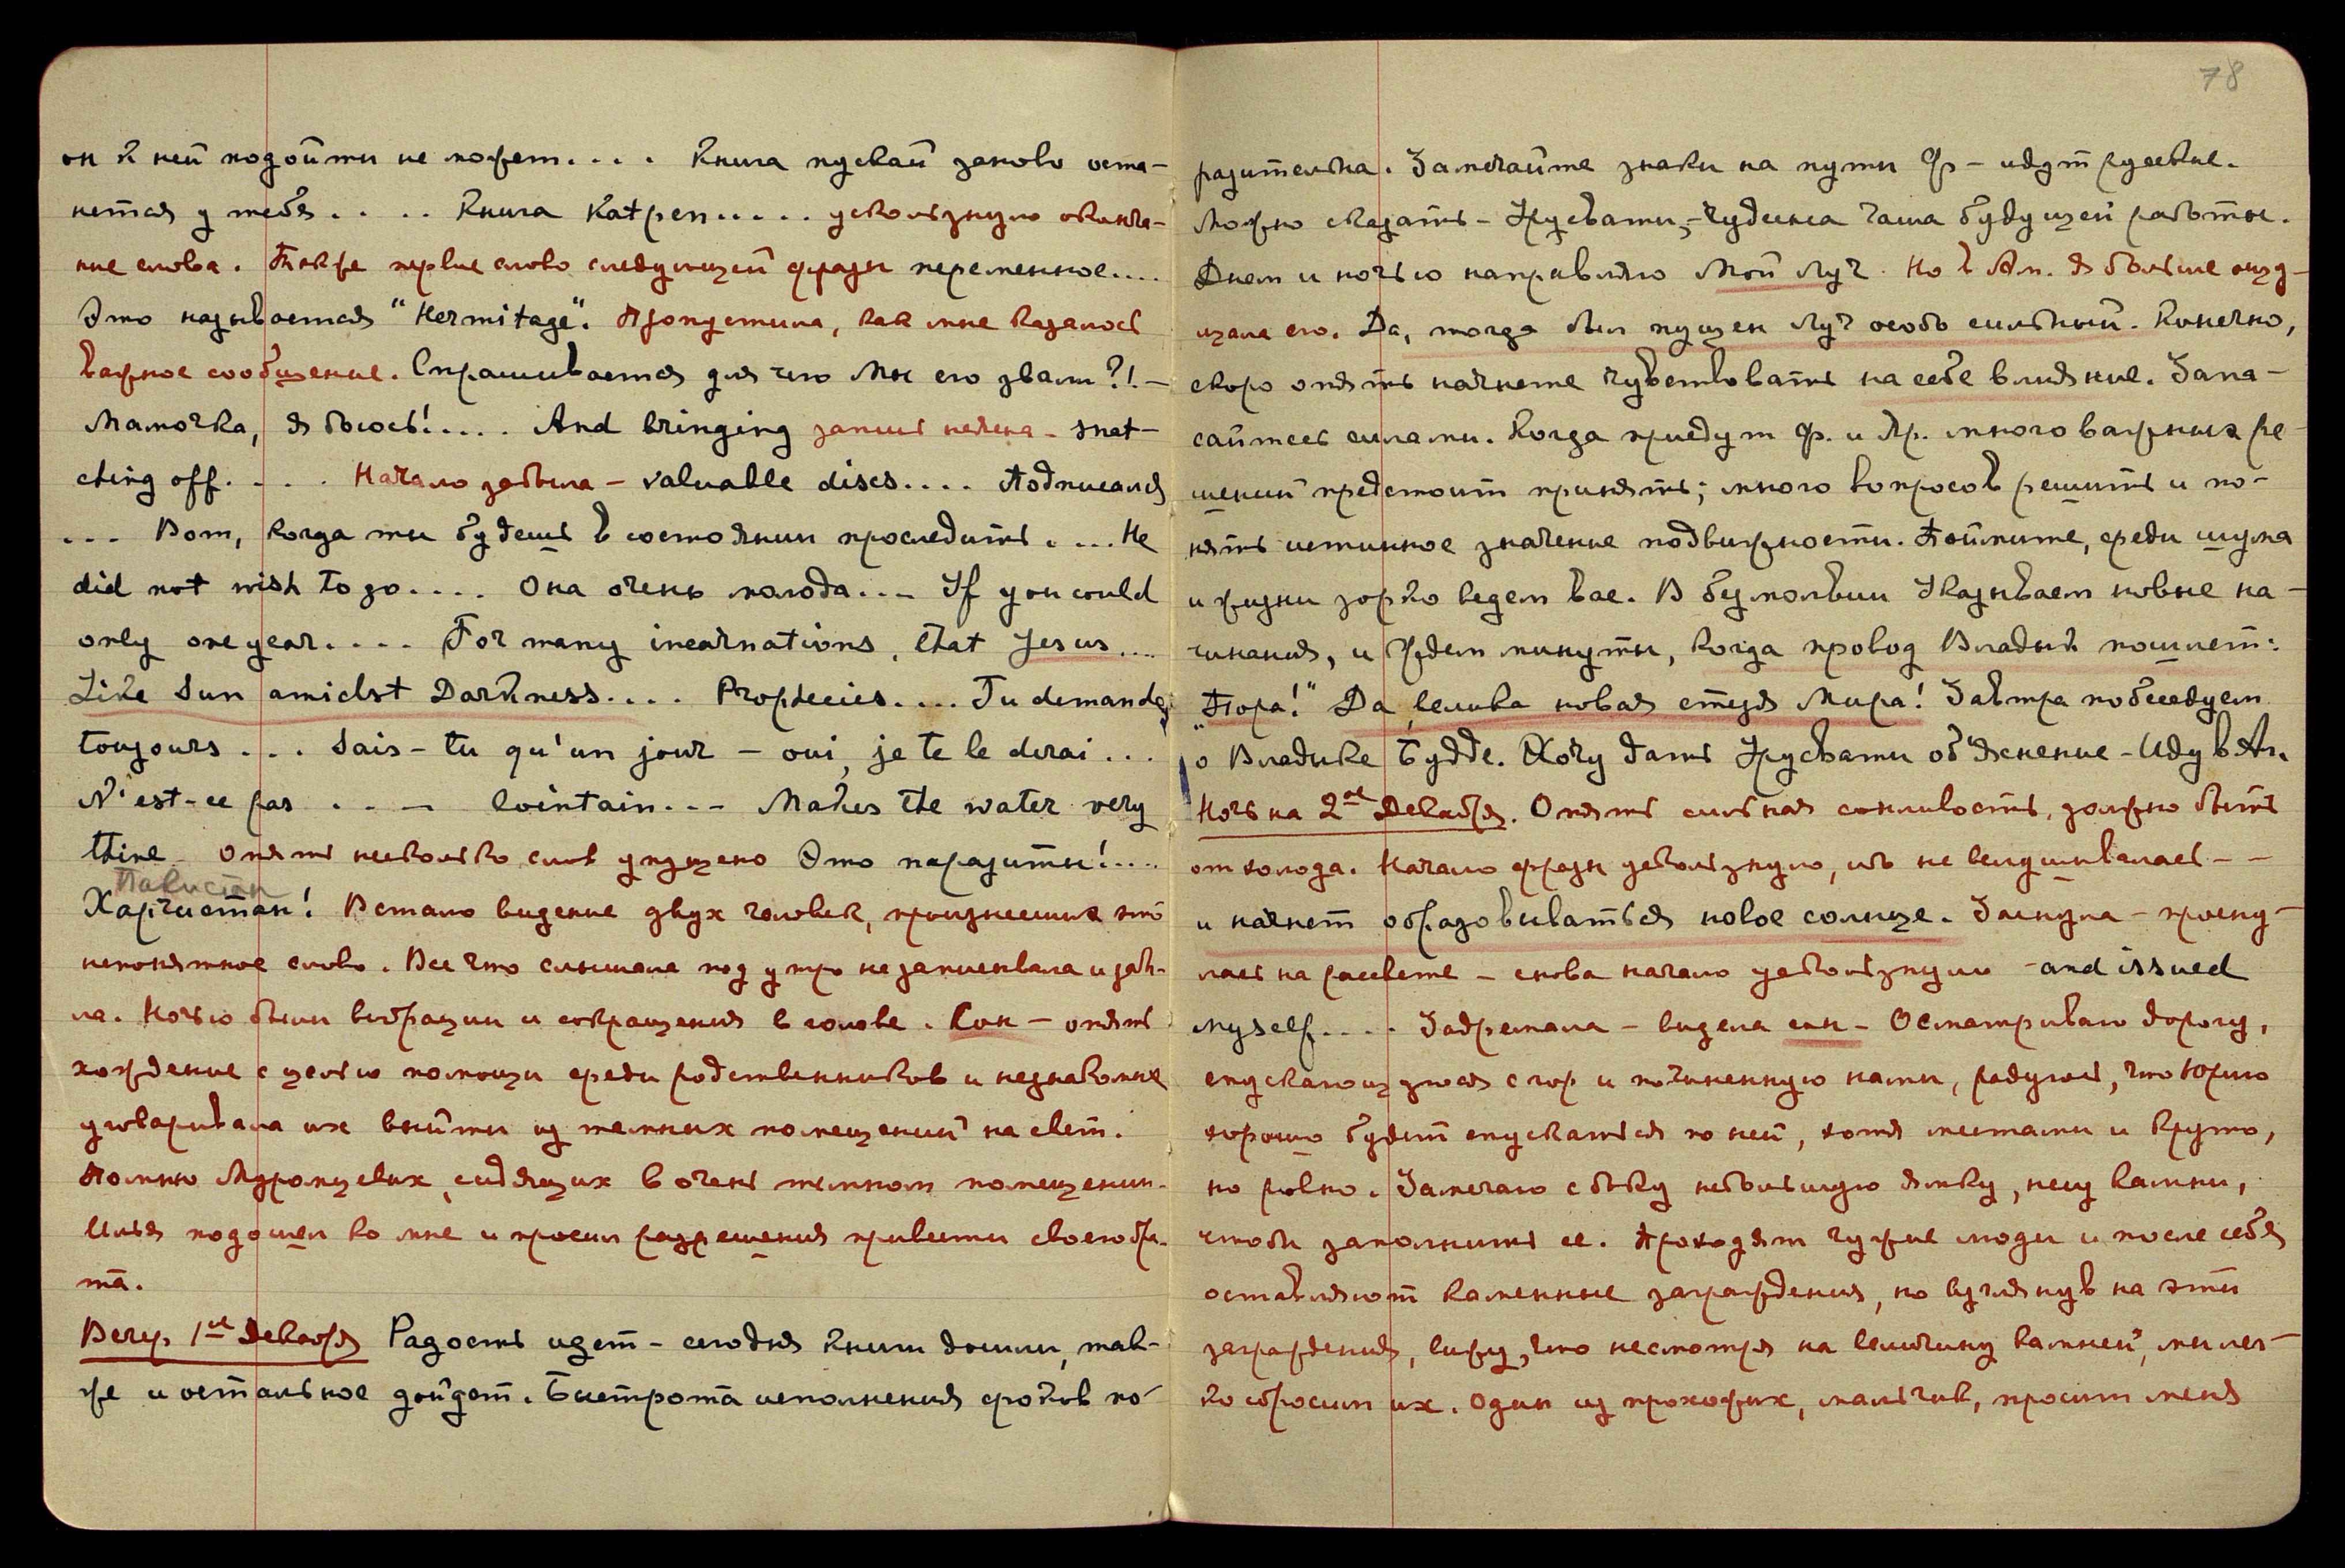 он к ней подойти не может.... Книга пускай заново оста-
нется у тебя.... Книга Katpen..... ускользнуло оконча-
ние слова. Также первые слово следующей фразы переменное....
Это называется "Hermitage". Пропустила, как мне казалось
важное сообщение. Спрашивается для чего Мы его звали?! –
Мамочка, я боюсь!..... And bringing запись неясна – snat-
ching off.... Начало забыла – valuable discs.... Подписался
... Вот, когда ты будешь в состоянии проследить.... He
did not wish to go.... Она очень молода... If you could
only one year.... For many incarnations, that Jesus...
Like Sun amidst Darkness.... Prophecies.... Tu demandes
toujours... Sais-tu qu'un jour – oui, je te le dirai...
N'est-ce pas... lointain... Makes the water very
thine – опять несколько слов упущено Это паразиты!....
Пакистан
Харчистан! Встало видение двух человек, произнесших это
непонятное слово. Все что слышала под утро не записывала и забы-
ла. Ночью были вибрации и сокращения в голове. Сон – опять
хождение с целью помощи среди родственников и незнакомых
уговаривала их выйти из темных помещений на свет.
Помню Муромцевых, сидящих в очень темном помещении.
Илья подошел ко мне и просил разрешения привести своего бра-
та.
Вечер 1ое Декабря Радость идет – сегодня книги дошли, так-
же и остальное дойдет. Быстрота исполнения сроков по-
78
разительна. Замечайте знаки на пути Ф – идут русские.
Можно сказать – Урусвати, – чудесна чаша будущей работы.
Днем и ночью направляю Мой Луч. Но в Ам. я больше ощу-
щала его. Да, тогда был пущен Луч особо сильный. Конечно,
скоро опять начнете чувствовать на себе влияние. Запа-
сайтесь силами. Когда приедут Ф. и Яр. много важных ре-
шений предстоит принять; много вопросов решить и по-
нять истинное значение подвижности. Поймите, среди шума
и жизни зорко ведем вас. В безмолвии Указываем новые на-
чинания, и Ждем минуты, когда провод Владык пошлет:
"Пора!" Да, велика новая стезя Мира! Завтра побеседуем
о Владыке Будде. Хочу дать Урусвати объяснение – Иду в Аг.
Ночь на 2ое Декабря. Опять сильная сонливость, должно быть
от холода. Начало фразы ускользнуло, ибо не вслушивалась – –
и начнет образовываться новое солнце. Заснула – просну-
лась на рассвете – снова начало ускользнуло – and issued
myself.... Задремала – видела сон – Осматриваю дорогу,
спускающуюся с гор и починенную нами, радуюсь, что хорошо
хорошо будет спускаться по ней, хотя местами и круто,
но ровно. Замечаю с боку небольшую ямку, несу камни,
чтобы заполнить ее. Проходят чужие люди и после себя
оставляют каменные заграждения, но взглянув на эти
заграждения, вижу, что несмотря на величину камней, мы лег-
ко сбросим их. Один из прохожих, мальчик, просит меня